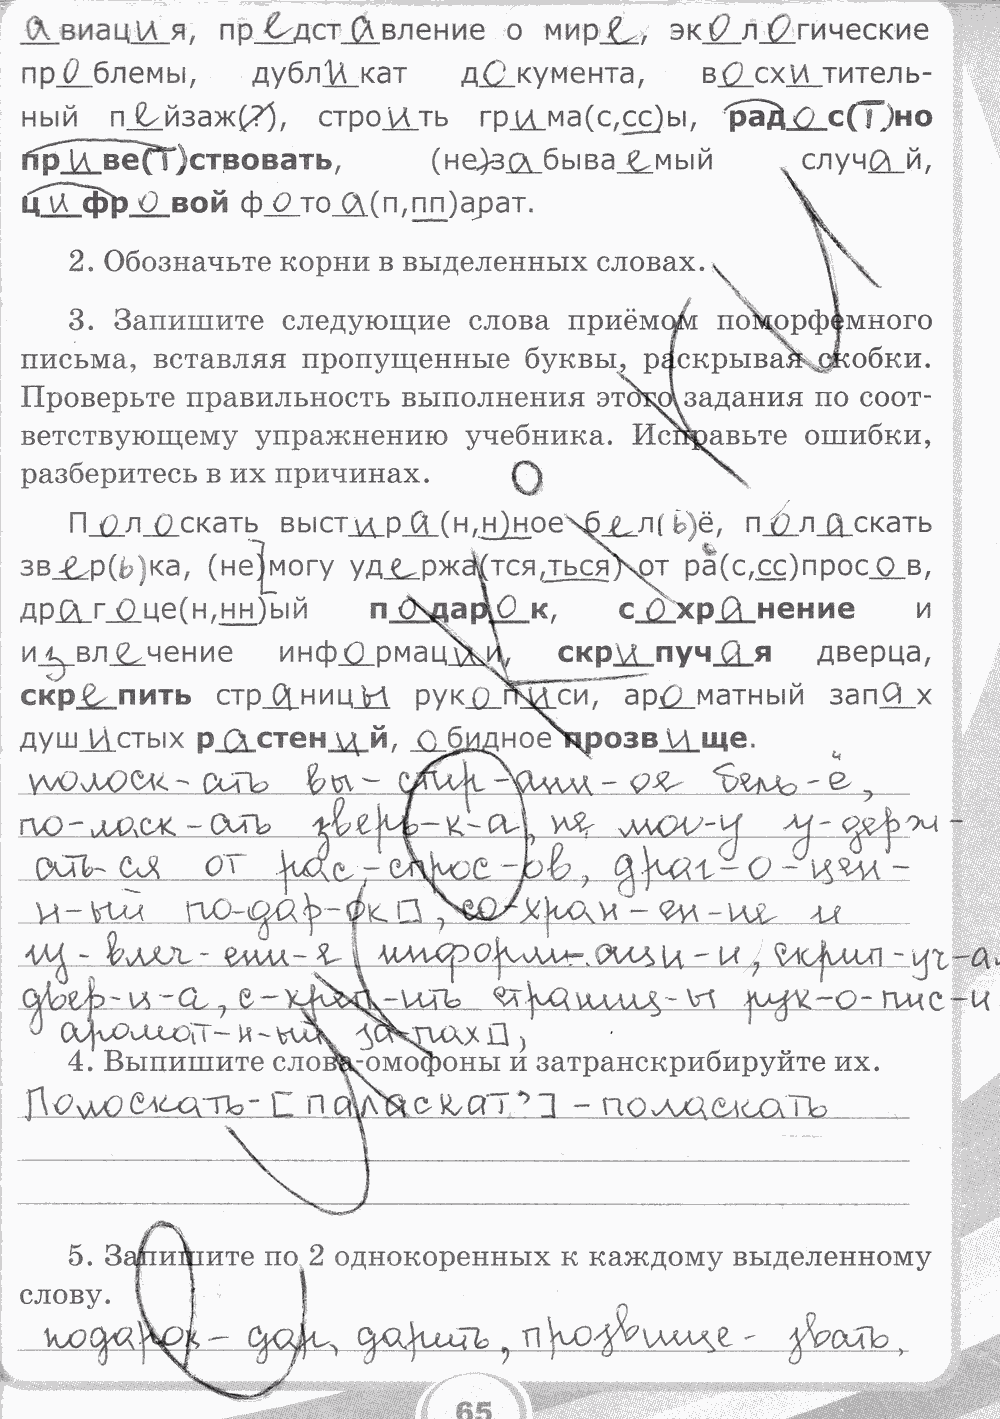 авиация, представление о мире, экологические
проблемы, дубликат документа, восхититель-
ный пейзаж(?), строить грима(с,сс)ы, радос(т)но
приве(т)ствовать, (не)забываемый случай,
цифровой фотоа(п,пп)арат.
2. Обозначьте корни в выделенных словах.
3. Запишите следующие слова приёмом поморфемного
письма, вставляя пропущенные буквы, раскрывая скобки.
Проверьте правильность выполнения этого задания по соот-
ветствующему упражнению учебника. Исправьте ошибки,
разберитесь в их причинах.
Полоскать выстира(н,н)ное бел(ь)ё, поласкать
звер(ь)ка, (не)могу удержа(тся,ться) от ра(с,сс)просов,
драгоце(н,нн)ый подарок, сохранение и
извлечение информации, скрипучая дверца,
скрепить страницы рукописи, ароматный запах
душистых растений, обидное прозвище.
полоск-ать вы-стир-анн-ое бель-ё,
по-ласк-ать зверь-к-а, не мог-у у-держ-
ать-ся от рас-спрос-ов, драг-о-цен-
н-ый по-дар-ок, со-хран-ен-ие и
из-влеч-ени-е информ-аци-и, скрип-уч-ая
двер-ц-а, с-креп-ить страниц-ы рук-о-пис-и
аромат-н-ый за-пах,
4. Выпишите слова-омофоны и затранскрибируйте их.
Полоскать-[паласкат']-поласкать
5. Запишите по 2 однокоренных к каждому выделенному
слову.
подарок- дар, дарить, прозвище- звать,
65